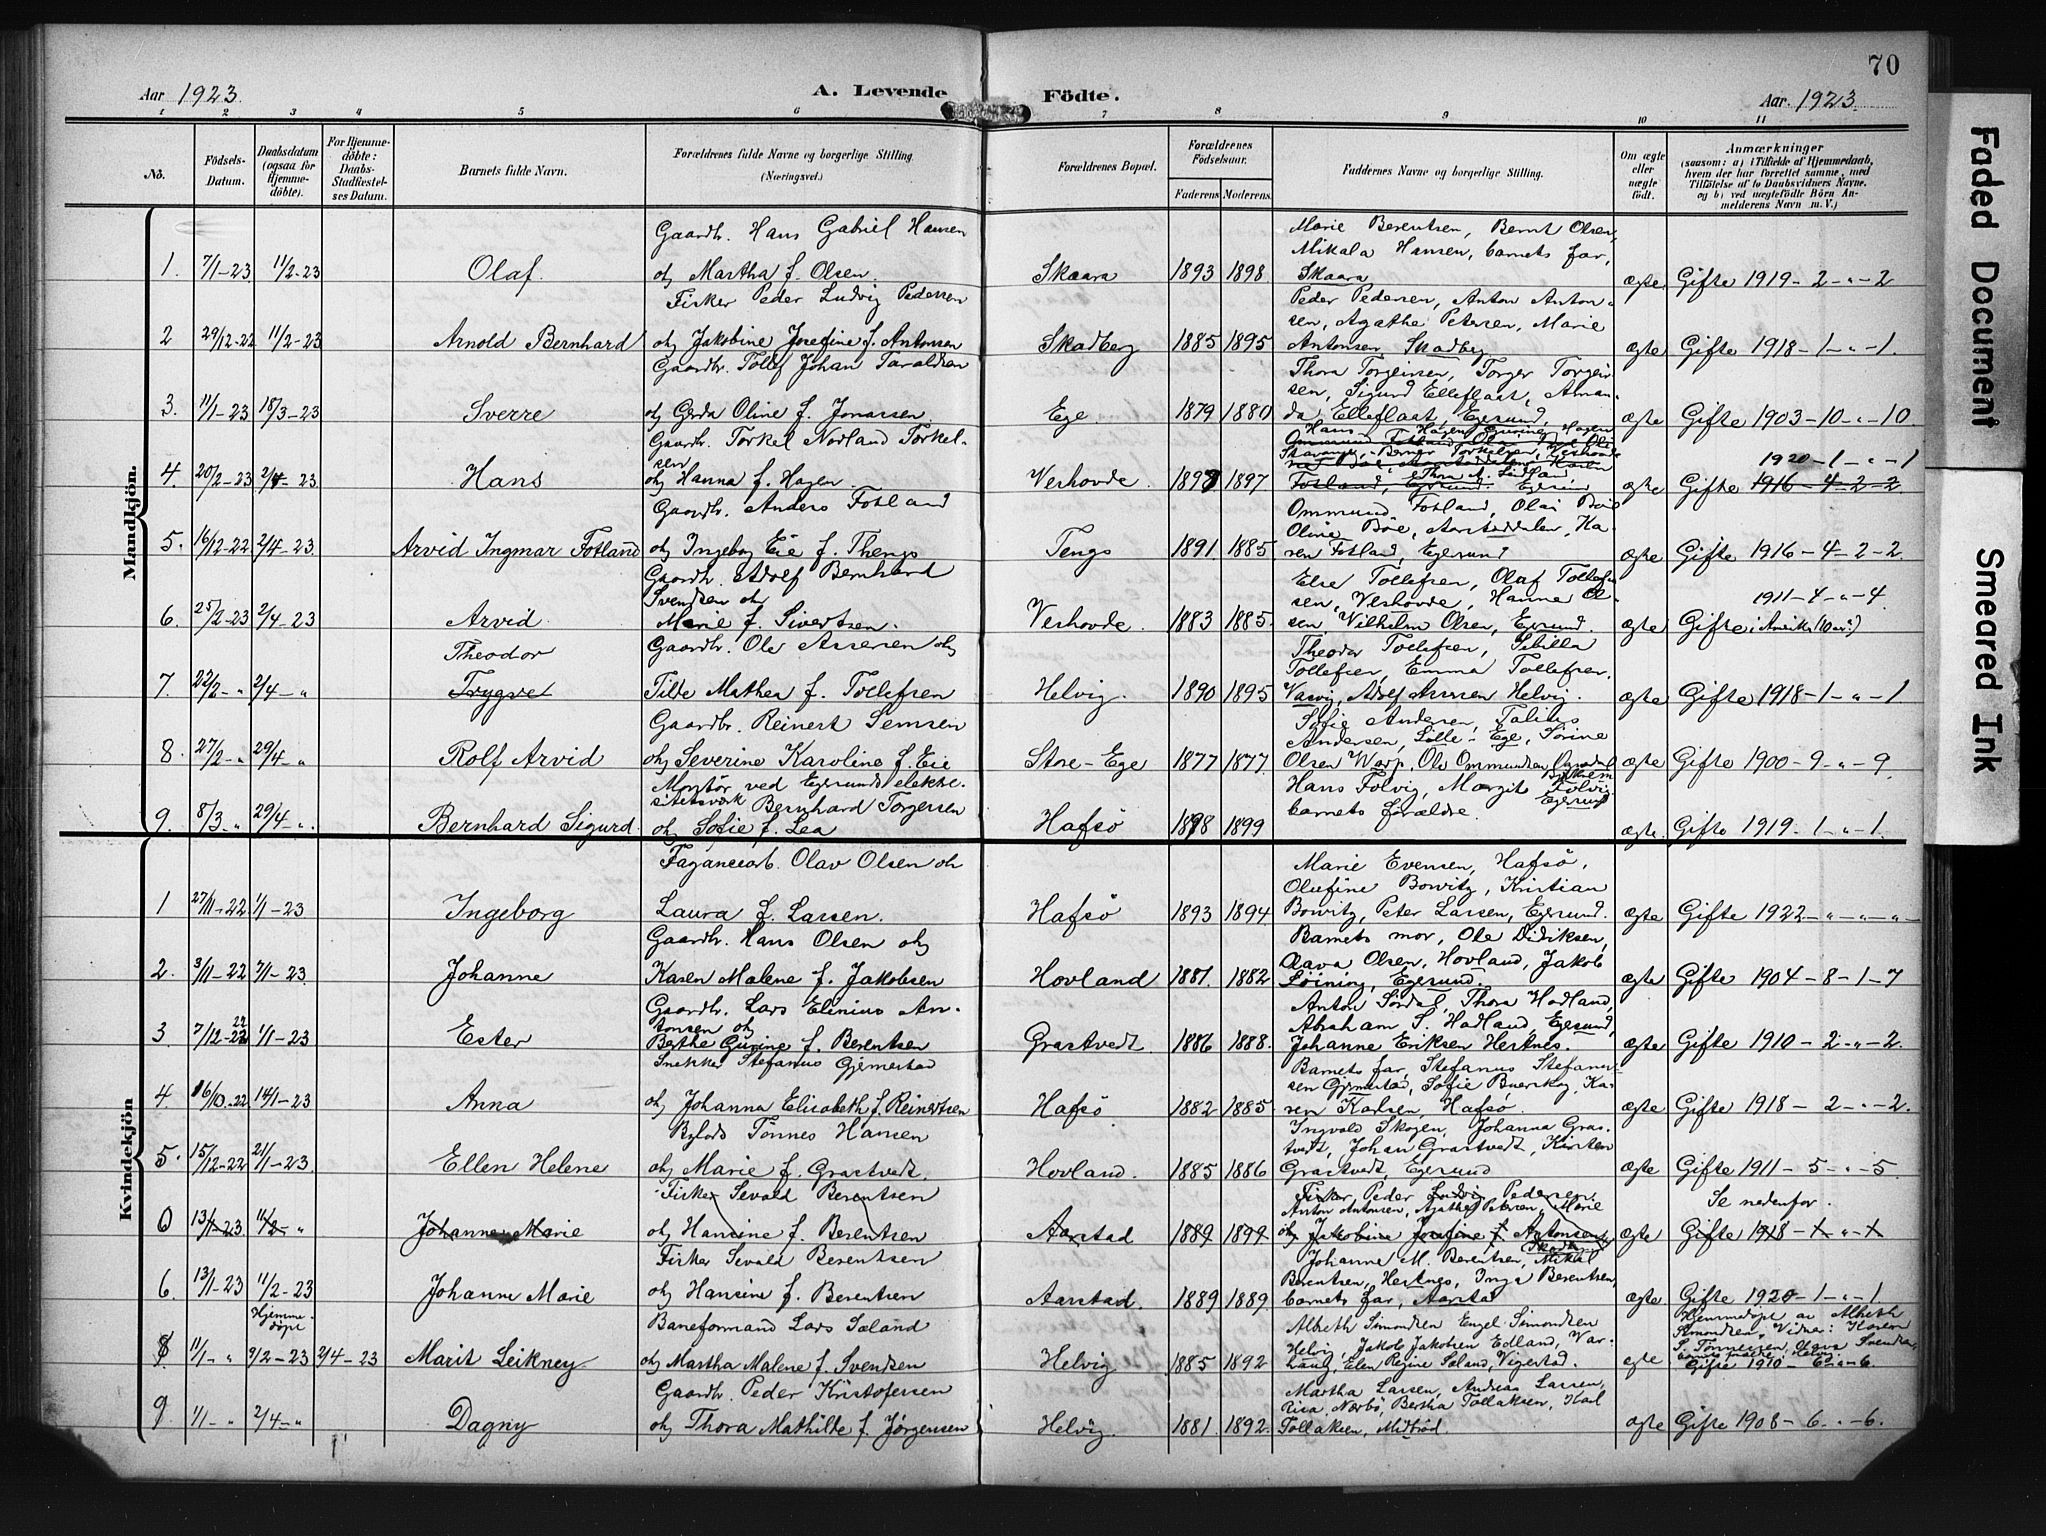 70
Aar 1923. A. Levende Födte. Aar 1923
1 2 3 4 5 6 7 8 9 10 11
No.
Födsels-Datum.
Daabsdatum (ogsaa for Hjemmedöbte).
For Hjemmedöbte: Daabs-Stadfæstelses Datum.
Barnets fulde Navn.
Forældrenes fulde Navne og borgerlige Stilling. (Næringsvei.)
Forældrenes Bopæl.
Forældrenes Födselsaar.
Faderens Moderens
Faddernes Navne og borgerlige Stilling.
Om ægte eller uægte födt.
Anmærkninger
(saasom: a) i Tilfælde af Hjemmedaab,
hvem der har forrettet samme, med
Tilföielse af to Daabsvidners Navne.
og b) ved uægtefödte Börn An-
melderens Navn m. V.)
Mandkjön.
Gaardbr. Hans Gabriel Hansen
Marie Berentsen, Bernt Olsen,
Mikala Hansen, barnets far,
1. 7/1-23 11/2-23 Olaf. og Martha f. Olsen. Skaara 1893 1898 Skaara ægte Gifte 1919-2-"-2
Fisker Peder Ludvig Pedersen
Peder Pedersen, Anton Anton-
sen, Agathe Petersen, Marie
2 29/12-22 11/2-23 Arnold Bernhard og Jakobine Josefine f. Antonsen Skadberg 1885 1895 Antonsen Skadberg ægte Gifte 1918-1-"-1.
Gaardbr. Tollef Johan Taraldsen
Thora Torgeirsen, Torger Torgeir-
sen, Sigurd Elleflaat, Aman-
3. 11/1-23 18/3-23 Sverre og Gerda Oline f. Jonassen Ege 1879 1880 da Elleflaat, Egersund. ægte Gifte 1903-10-"-10
Gaardbr. Torkel Nodland Torkel-
sen
1920-1-"-1
4. 20/2-23 2/4-23 Hans og Hanna f. Hagen. Veshovde. 1897 1897 Fotland, Egersund. ægte Gifte 1916-4-2-2
Gaardbr. Anders Fotland
Ommund Fotland, Olai Böe
Oline Böe, Aarstaddalen, Ka-
5. 16/12-22 2/4-23. Arvid Ingmar Fotland og Ingeborg Eie f. Thengs Tengs 1891 1885 ren Fotland, Egersund ægte Gifte 1916-4-2-2.
Gaardbr. Adolf Bernhard
Svendsen og
Else Tollefsen, Olaf Tollef-
sen, Veshovde, Hanna Ol-
1911-4-"-4.
6. 25/2-23 2/4-23 Arvid Marie f. Sivertsen. Veshovde. 1883 1885. sen Vilhelm Olsen, Egersund. ægte Gifte i Amerika (10 aar)
Theodor Gaardbr. Ole Assersen og
Theodor Tollefsen, Sibilla
Tollefsen, Emma Tollefsen.
7. 22/2-" 2/4-" Trygve Tilde Mathea f. Tollefsen Helvig. 1890 1895 Varvig, Adolf Assersen Helvig. ægte Gifte 1918-1-"-1
Gaardbr. Reinert Semsen
Sofie Andersen, Talitus
Andersen, Lille-Ege, Sörine
8. 27/2-" 29/4-" Rolf Arvid og Severine Karoline f. Eie Store-Ege 1877 1877 Olsen Warp, Ole Ommundsen ægte Gifte 1900-9-"-9
Montör ved Egersunds elektri-
sitetsverk Bernhard Torgersen
Hans Folvig, Margit Folvig
Egersund
9. 8/3-" 29/4-". Bernhard Sigurd. og Sofie f. Lea Hafsö 1898 1899 barnets forældre. ægte. Gifte 1919-1-"-1.
Kvindekjön
Fajancearb. Olav Olsen og
Marie Evensen, Hafsö,
Olufine Bowitz, Kristian
1 27/11-22 1/1-23 Ingeborg Laura f. Larsen. Hafsö 1893 1894. Bowitz, Peter Larsen, Egersund. ægte Gifte 1922-"-"-"-
Gaardbr. Hans Olsen og
Barnets mor, Ole Didriksen,
Olava Olsen, Hovland, Jakob
2. 3/11-22 7/1-23. Johanne Karen Malene f. Jakobsen Hovland 1881. 1882 Löining, Egersund. ægte Gifte 1904-8-1-7
Gaardbr. Lars Elinius An-
tonsen og
Anton Sördal, Thora Hadland,
Abraham S. Hadland, Egersund,
3 7/12-22 1/1-23 Ester Berthe Gurine f. Berentsen Grastvedt. 1886 1888. Johanne Eriksen Hestnes. ægte Gifte 1910-2-"-2.
Snekker Stefanus Gjermestad
Barnets far, Stefanus Stefanus-
sen Gjermestad, Sofie Buerskog, Ka-
4 16/10-22 14/1-23 Anna og Johanna Elisabeth f. Reinertsen Hafsö 1882 1885. ren Karlsen, Hafsö. ægte Gifte 1918-2-"-2.
Bybud Tönnes Hansen
Ingvald Skogen, Johanna Gras-
tvedt, Johan Grastvedt, Kirsten
5. 15/12-22 21/1-23 Ellen Helene og Marie f. Grastvedt. Hovland. 1885 1886 Grastvedt Egersund ægte Gifte 1911-5-"-5
Fisker Sevald Berentsen
Fisker, Peder Ludvig Pedersen.
Anton Antonsen, Agathe Petersen, Marie
Se nedenfor.
6 13/1-23 11/2-" Johanne Marie og Hansine f. Berentsen Aarstad 1889 1899 og Jakobine Josefine f. Antonsen ægte Gifte 1918-1-"-1
Fisker Sevald Berentsen
Johanne M. Berentsen, Mikal
Berentsen, Hestnes, Inga Berentsen,
6. 13/1-23 11/2-23 Johanne Marie og Hansine f. Berentsen Aarstad. 1889 1889 barnets far, Aarstad ægte Gifte 1920-1-"-1.
Hjemme-
döpt Baneformand Lars Sæland
Albreth Simondsen Engel Simondsen
Helvig, Jakob Jakobsen Edland, Var-
Hjemmedöpt av Albreth
Simondsen, Vidner: Karen
S. Tönnessen, Olava Svendsen
8 11/1-" 9/2-23 2/4-23 Marit Leikney og Martha Malene f. Svendsen Helvig 1885 1892 haug, Elen Regine Sæland, Vigerstad. ægte Gifte 1910-6-"-6.
Gaardbr. Peder Kristofersen
Martha Larsen, Andreas Larsen,
Rica Nærbö, Bertha Tollaksen, Karl
9 1/1-" 2/4-" Dagny og Thora Mathilde f. Jörgensen Helvig. 1881. 1892. Tollaksen, Midbröd. ægte Gifte 1908-6-"-6.
Faded Document
Smeared Ink